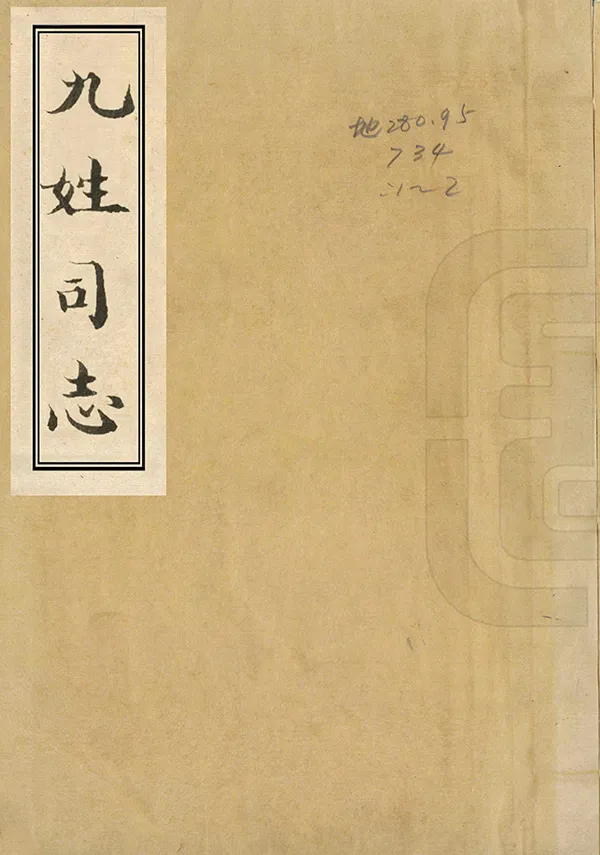 九姓司志
地280.95
734
:1～2